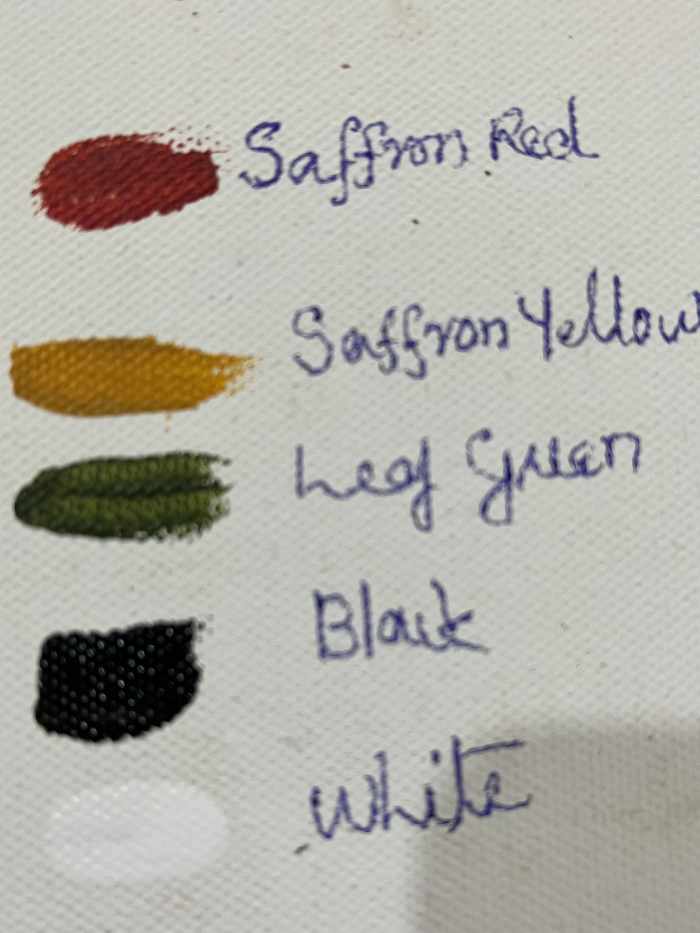 Saffron Red
Saffron Yellow
Leaf Green
Black
White